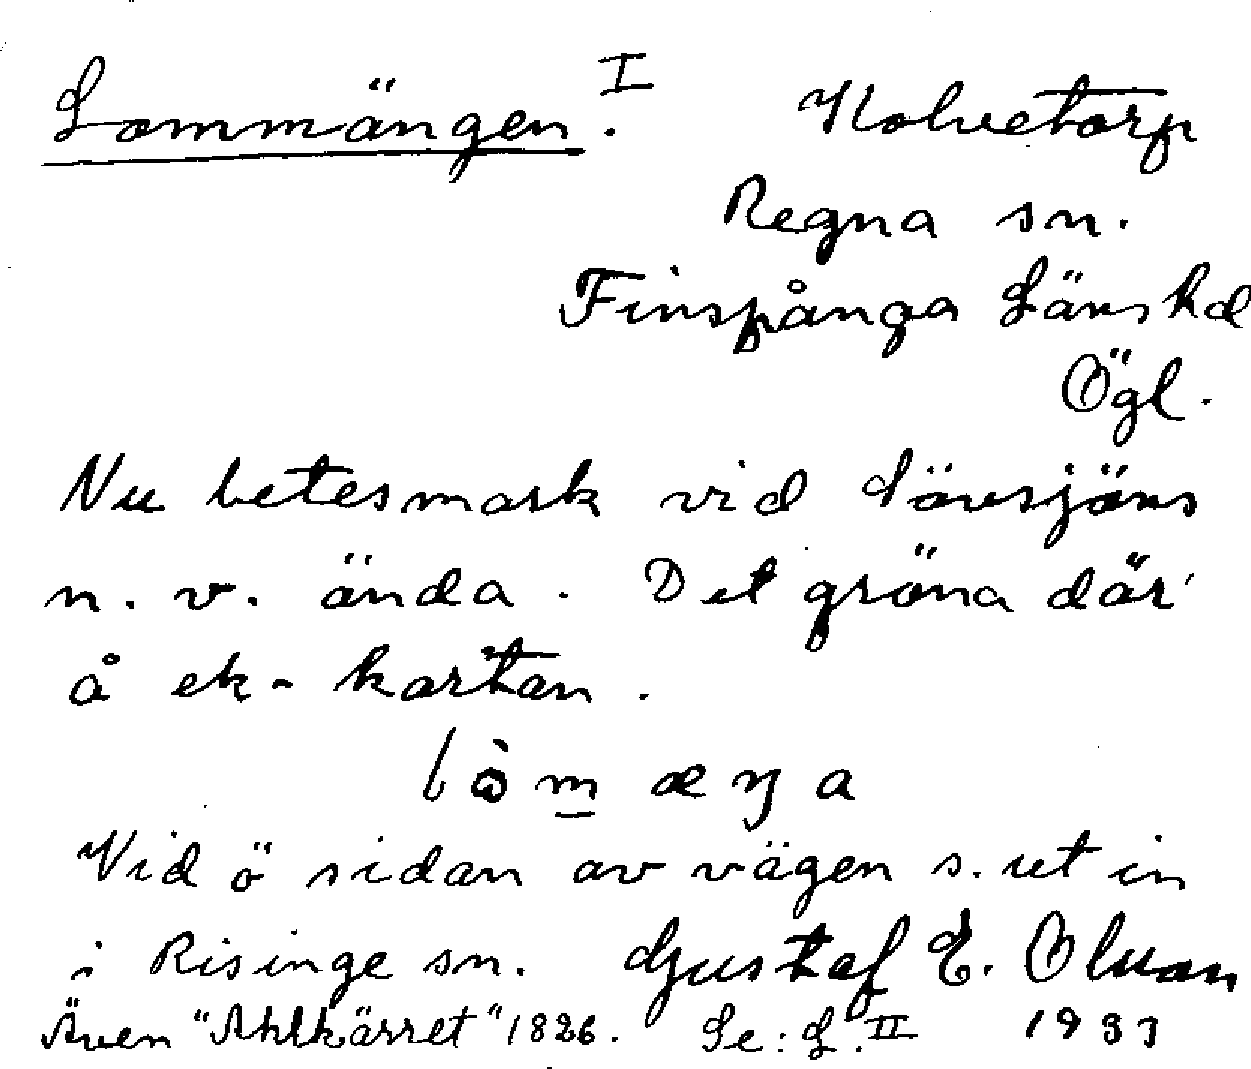 Lommängen. I Kolvetorp
Regna sn.
Finspånga Länshd
Ögl.
Nu betesmark vid Lövsjöns
n. v. ända. Det gröna där
å ek-kartan.
lòm æŋa
Vid ö sidan av vägen s. ut in
i Risinge sn. Gustaf E. Olsson
Även "Ahlkärret" 1826. Se: L. II 1933